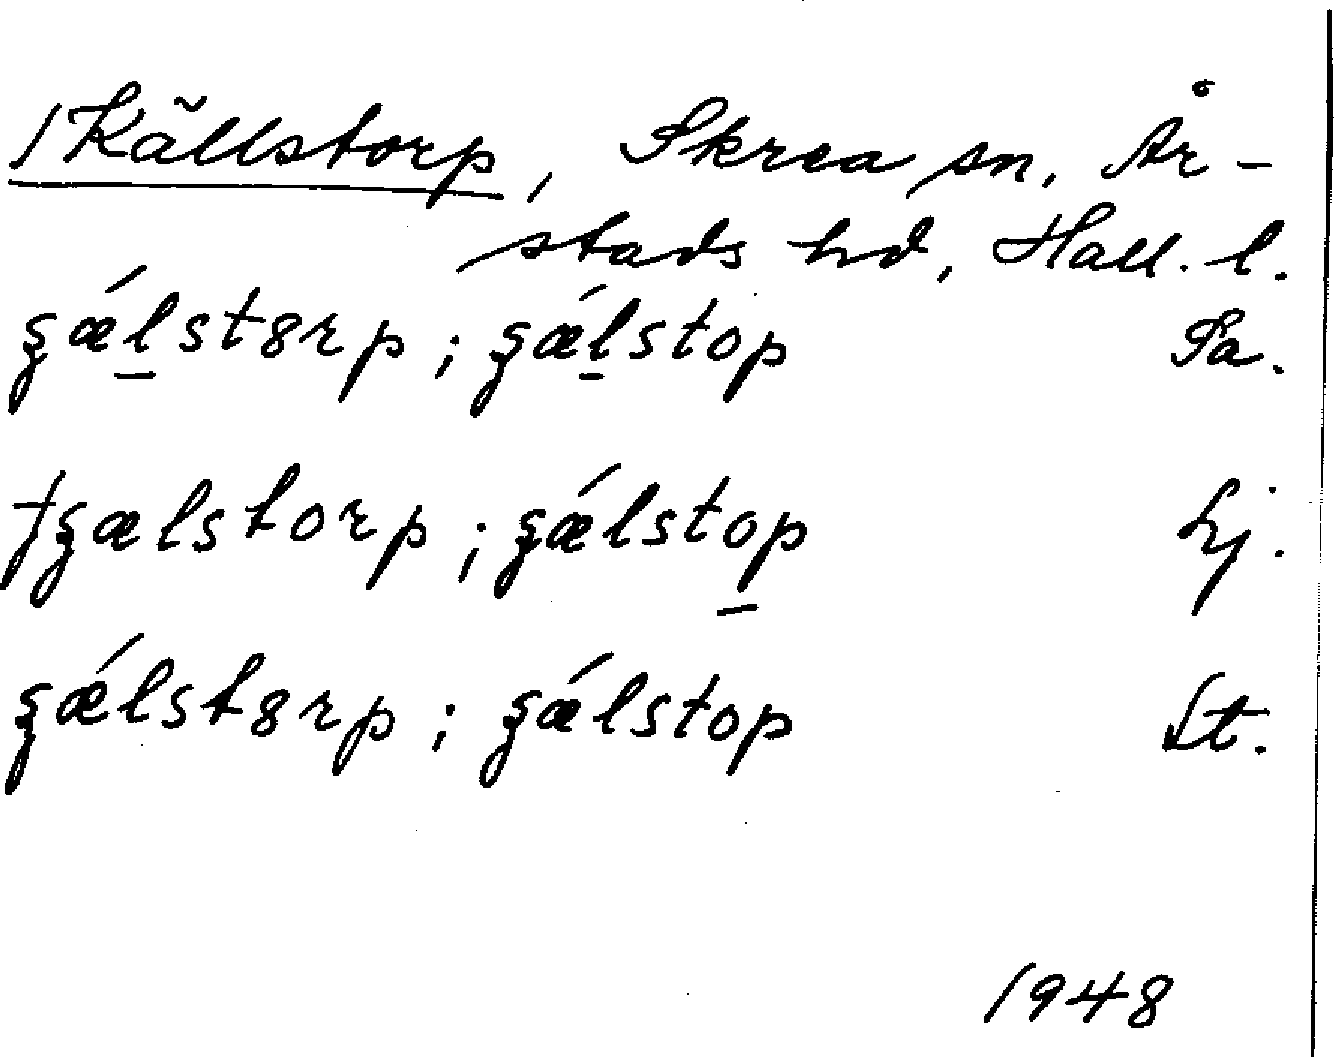 /Källstorp, Skrea sn, År-
stads hd, Hall. l.
ʂǽlst8rp; ʂǽlstop Sa.
†ʂælstorp; ʂǽlstop Lj.
ʂǽlst8rp; ʂǽlstop St.
1948